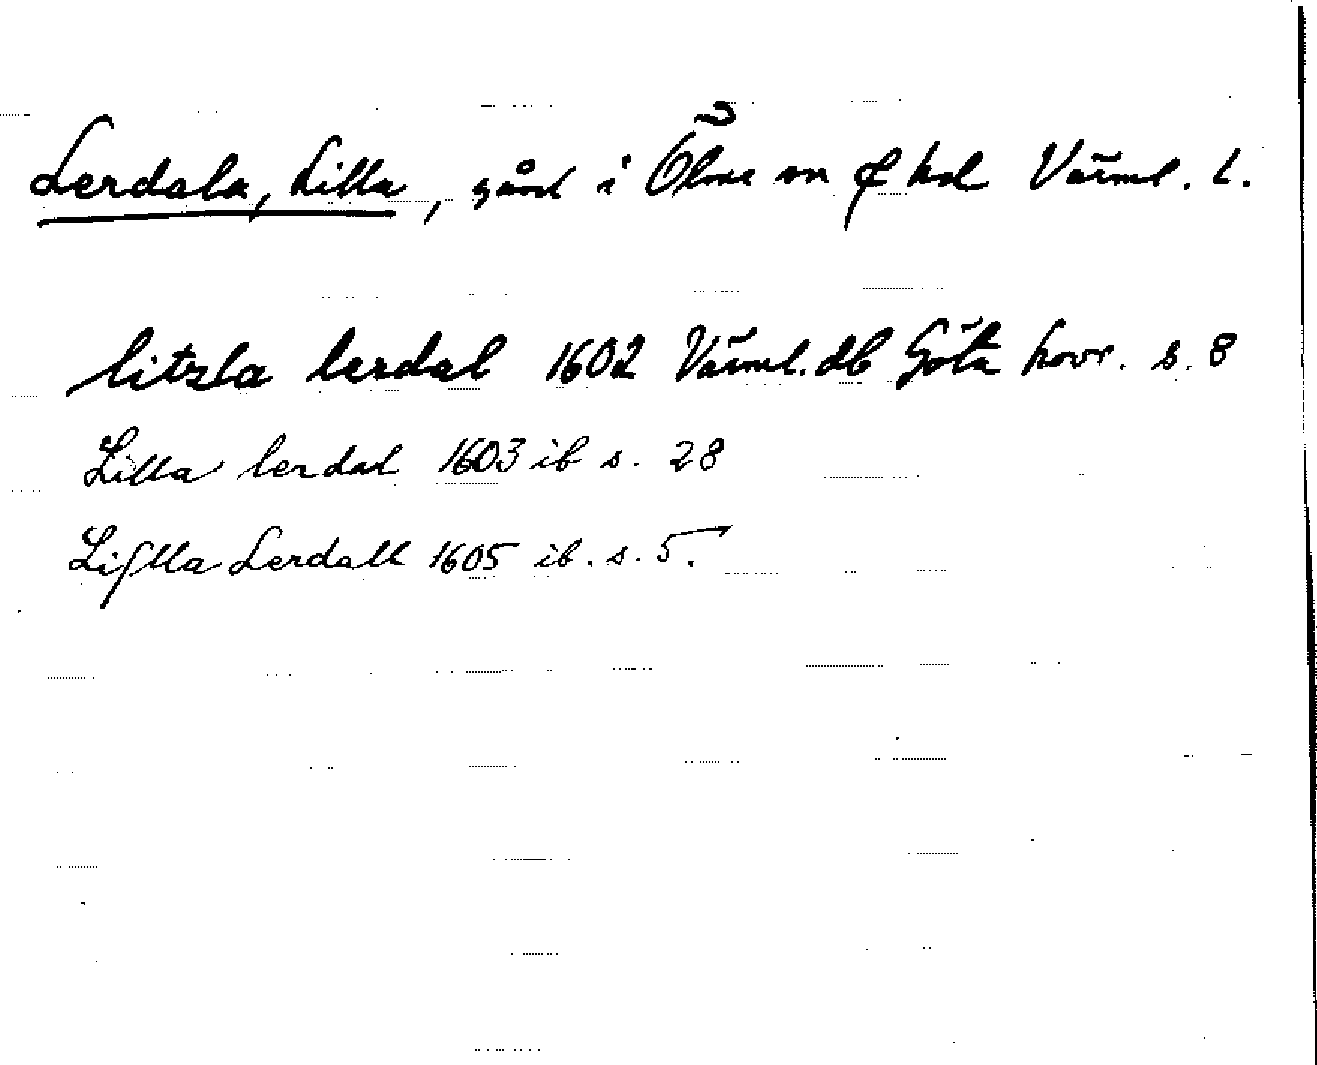 Lerdala, Lilla, gård i Ölme sn & hd Värml. L.
litzla lerdal 1602 Värml. db Göta hovr. s. 8
Lilla lerdal 1603 ib s. 28
Lislla Lerdall 1605 ib. s. 5.